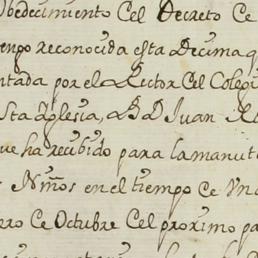 Obedecimiento Cel Decreto Ce
empo reconocida esta Decima q
ntada por el Rector Cel Colegi
sta Iglesia, D. D. Juan Ro
ue ha recibido para la manut
s Niños en el tiempo Ce Vn a
ero Ce Octubre Cel proximo pa